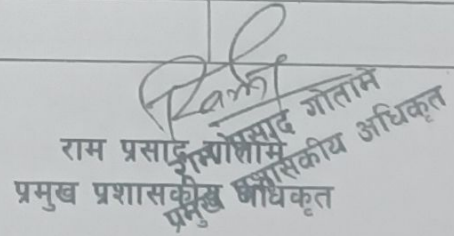 Ram
राम प्रसाद गौतामे
प्रमुख प्रशासकीय अधिकृत
राम प्रसाद गोतामे
प्रमुख प्रशासकीय अधिकृत